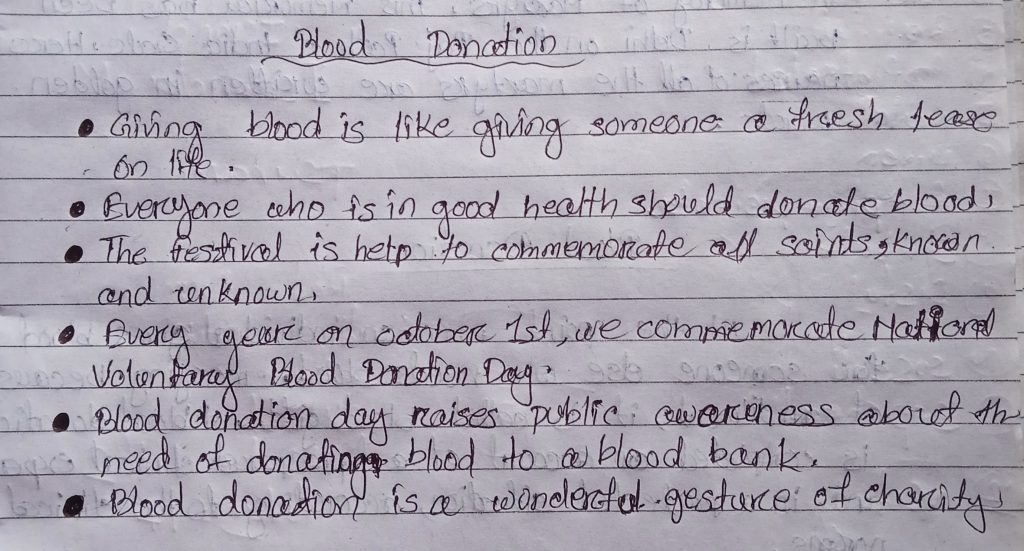 Blood Donation
• Giving blood is like giving someone a fresh lease
on life.
• Everyone who is in good health should donate blood,
• The festival is help to commemorate all saints, known
and unknown,
• Every year on october 1st, we commemorate National
Voluntary Blood Donation Day.
• Blood donation day raises public awareness about th
need of donating blood to a blood bank.
• Blood donation is a wonderful gesture of charity,